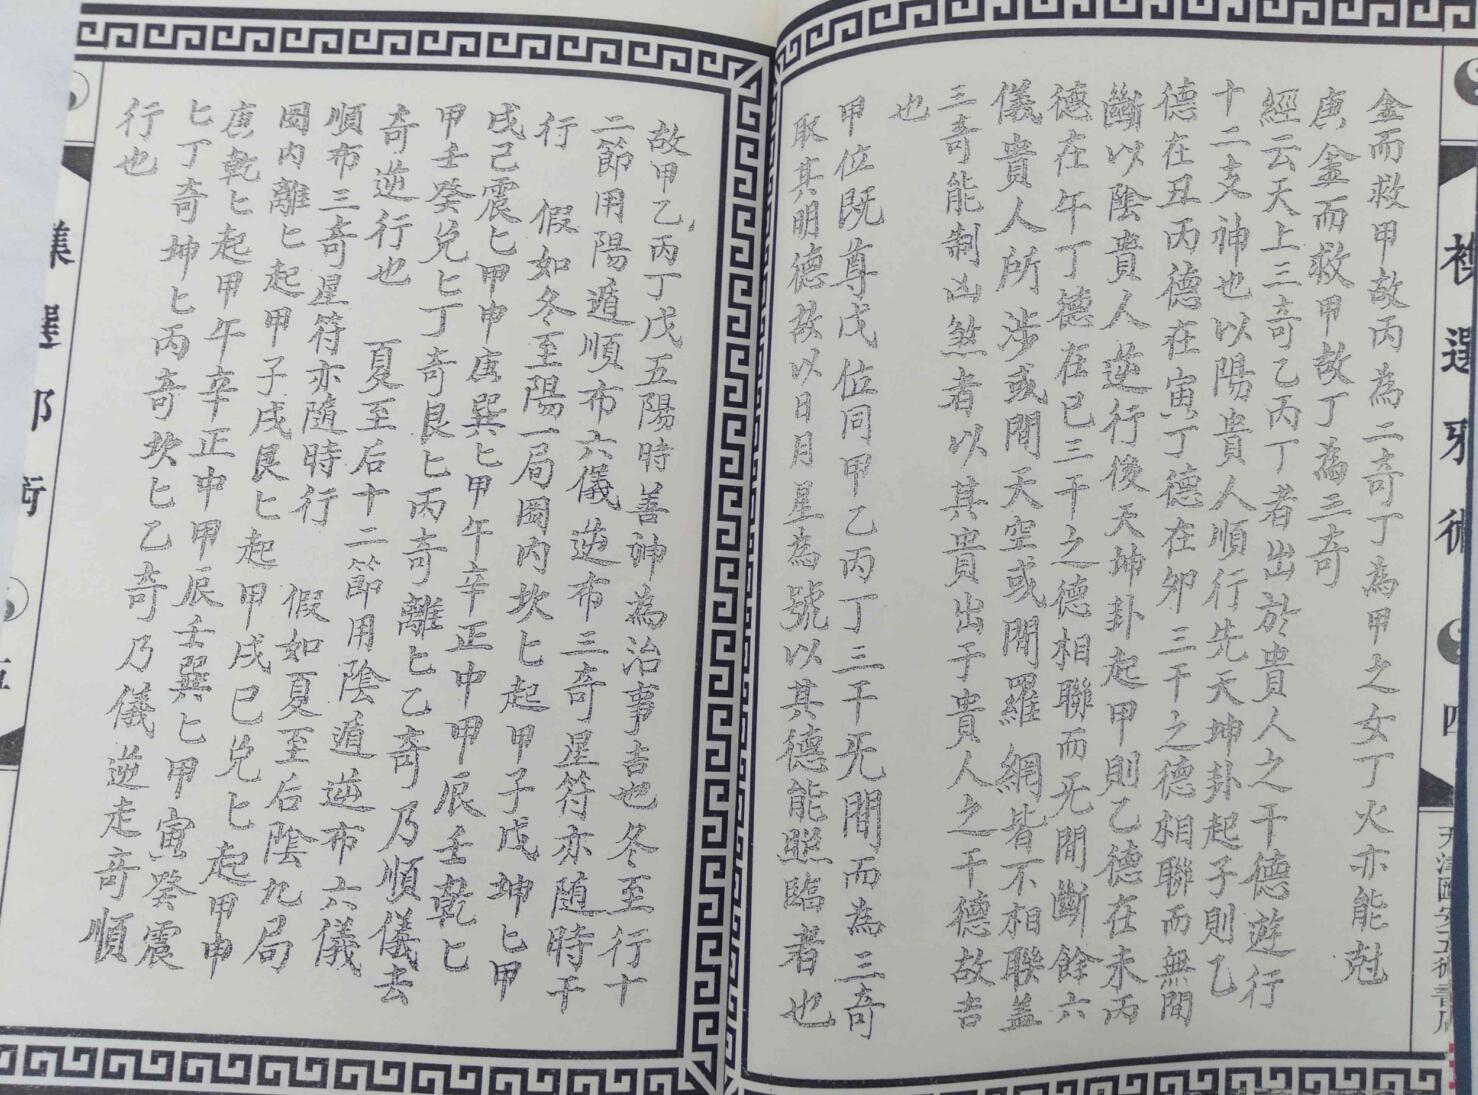 金而救甲故丙為二奇丁為甲之女丁火亦能尅
庚金而救甲故丁為三奇
經云天上三奇乙丙丁者出於貴人之干德遊行
十二支神也以陽貴人順行先天坤卦起子則乙
德在丑丙德在寅丁德在夘三干之德相聯而無間
斷以陰貴人逆行後天坤卦起甲則乙德在未丙
德在午丁德在巳三干之德相聯而旡間斷餘六
儀貴人所涉或間天空或間羅網皆不相聯盖
三奇能制凶煞者以其貴出于貴人之干德故吉
也
甲位既尊戊位同甲乙丙丁三干旡間而為三奇
取其明德故以日月星為號以其德能照臨者也
故甲乙丙丁戊五陽時善神為治事吉也冬至行十
二節用陽遁順布六儀逆布三奇星符亦随時干
行 假如冬至陽一局圂内坎匕起甲子戊坤匕甲
戌己震匕甲申庚巽匕甲午辛正中甲辰壬乾匕
甲壬癸兑匕丁奇艮匕丙奇離匕乙奇乃順儀去
奇逆行也 夏至后十二節用陰遁逆布六儀
順布三奇星符亦隨時行 假如夏至后陰九局
圂内離匕起甲子戌艮匕起甲戌巳兑匕起甲申
庚乾匕起甲午辛正中甲辰壬巽匕甲寅癸震
匕丁奇坤匕丙奇坎匕乙奇乃儀逆走奇順
行也
襍選牙術
四